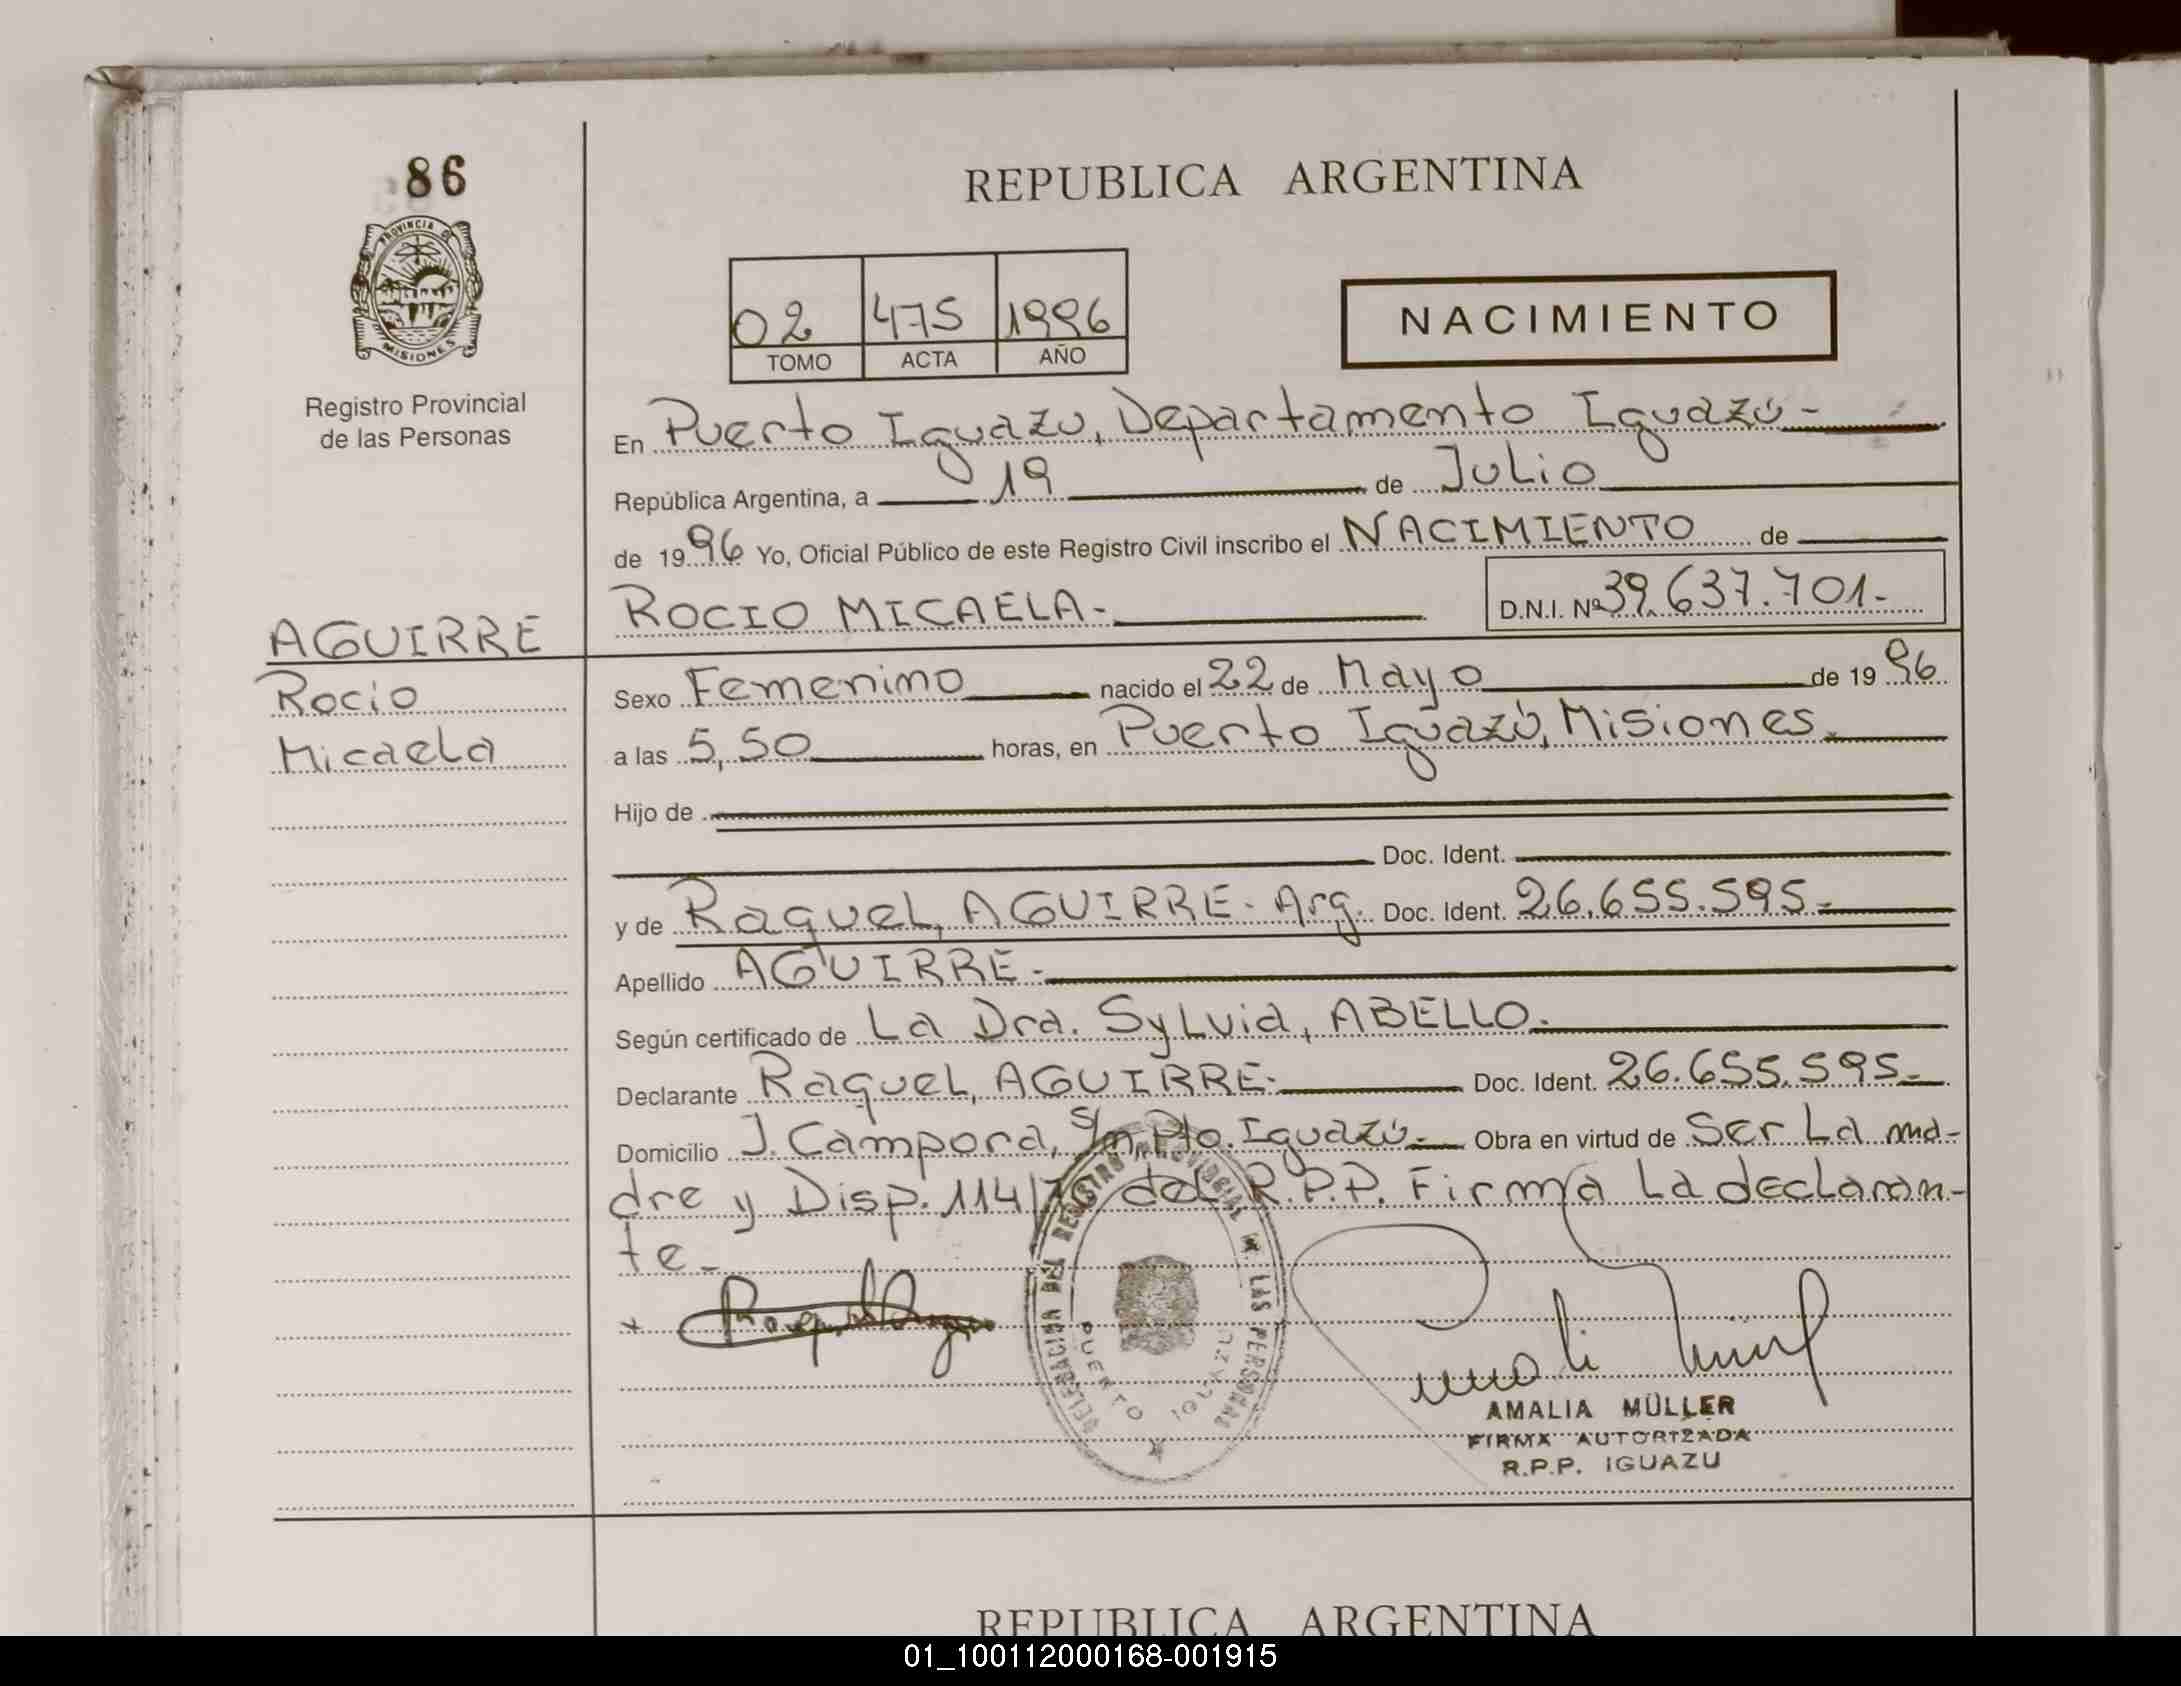 86
PROVINCIA D
MISIONES
Registro Provincial
de las Personas
REPUBLICA ARGENTINA
02 475 1996
TOMO ACTA AÑO
NACIMIENTO
En Puerto Iguazu, Departamento Iguazú-
República Argentina, a 19 de Julio
de 1996 Yo, Oficial Público de este Registro Civil inscribo el NACIMIENTO de
ROCIO MICAELA- D.N.I. Nº 39.637.701-
AGUIRRE
Rocio
Micaela
Sexo Femenino nacido el 22 de Mayo de 1996
a las 5,50 horas, en Puerto Iguazú, Misiones.
Hijo de
Doc. Ident.
y de Raquel, AGUIRRE- Arg. Doc. Ident. 26.655.595-
Apellido AGUIRRE-
Según certificado de La Dra. Sylvia, ABELLO.
Declarante Raquel, AGUIRRE- Doc. Ident. 26.655.595-
Domicilio J. Campora, s/n Pto. Iguazú- Obra en virtud de Ser La ma-
dre y Disp. 114/ del R.P.P. Firma La declaran-
te-
DELEGACION DEL REGISTRO PROVINCIAL DE LAS PERSONAS
PUERTO IGUAZU
AMALIA MÜLLER
FIRMA AUTORIZADA
R.P.P. IGUAZU
REPUBLICA ARGENTINA
01_100112000168-001915